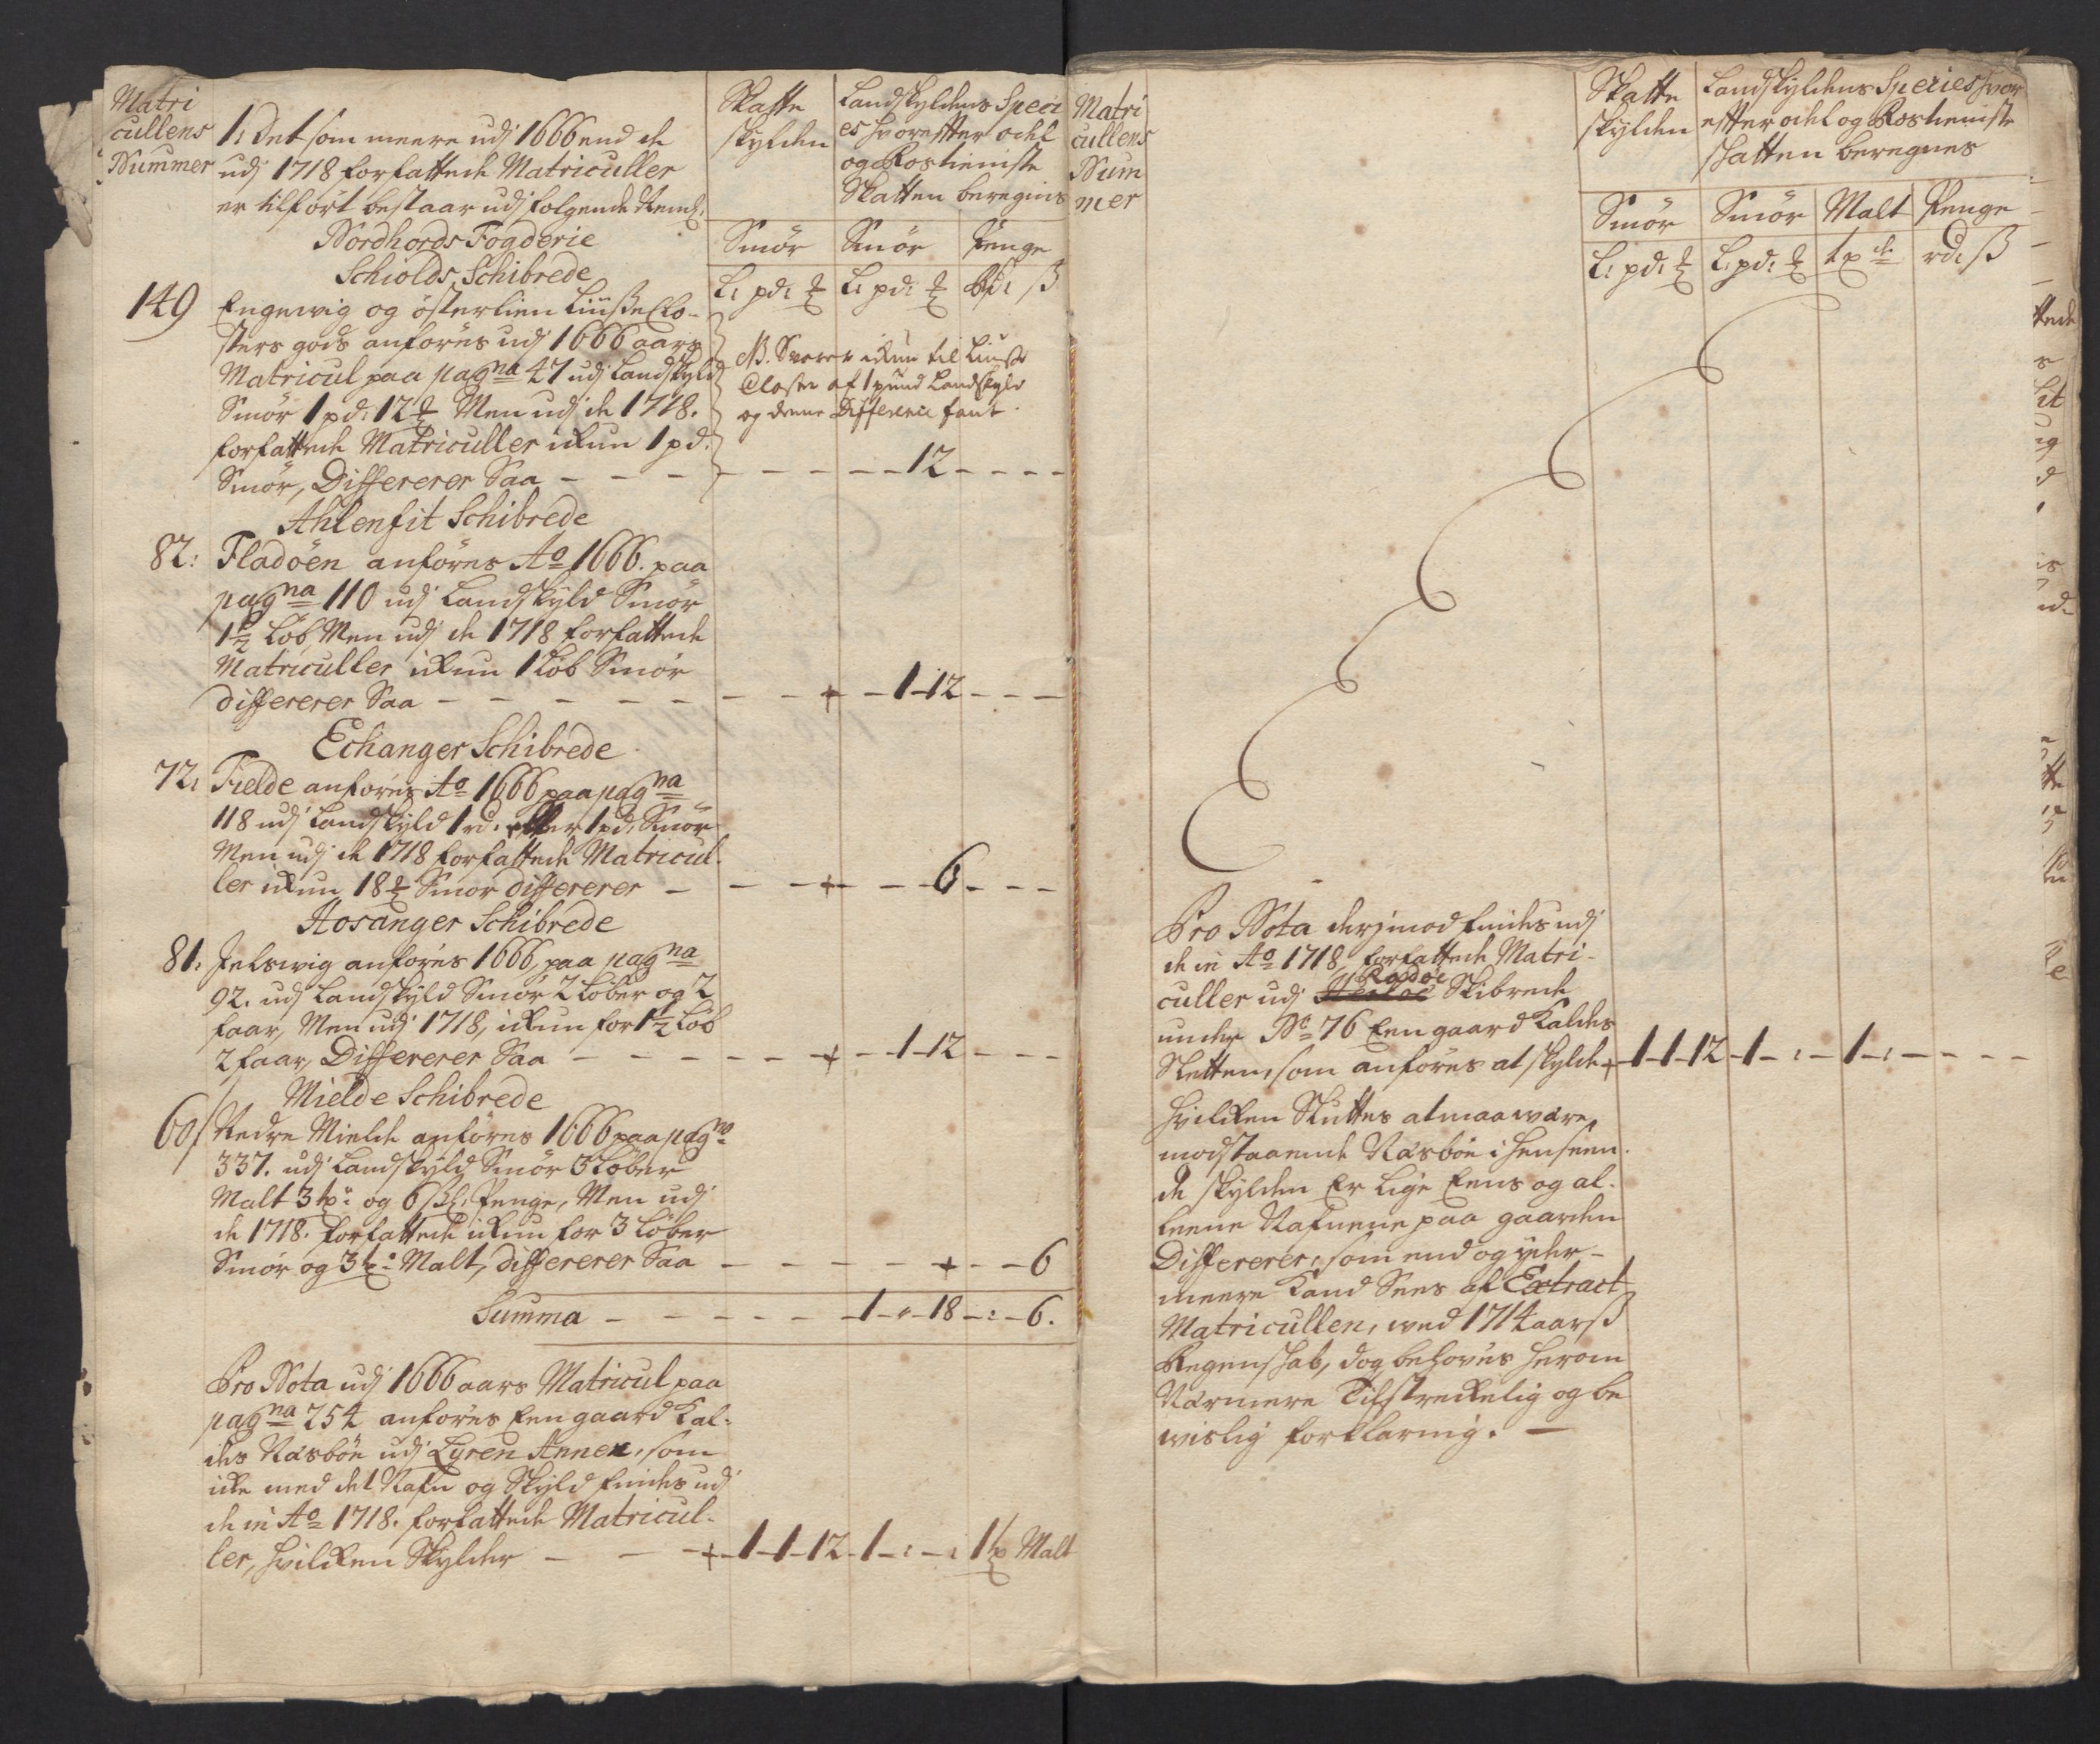 Matri
cullens
Nummer
1: Det som meere udj 1666 end de
udj 1718 forfattede Matriculler
er tilført bestaar udj folgende Neml:
Skatte
skylden
Landskyldens Speci
es hvorefter odel
og Rostieniste
Skatten beregnis
Smör Smör Penge
L: pd: ℔ L: pd: ℔ Rd: ß
Nordhords Fogderie
Schiolds Schibrede
149 Engewig og österlien Lÿsse Clo-
sters gods anföres udj 1666 aars
Matricul paa pagna 47 udj Landskyld
Smör 1 pd: 12 ℔ Men udj de 1718.
forfattede Matriculler ikun 1 pd:
Smör, Differerer Saa - - - 12 - - -
NB. Svarer ikun til Liusse
Closter af 1 pund Landskyld
og denne Difference fant.
Ahlenfit Schibrede
82: Fladöen anföres Ao 1666. paa
pagna 110 udj Landskÿld Smör
1½ Löb Men udj de 1718 forfattede
Matriculler ikun 1 Löb Smör
differerer Saa - - - - - + - 1 - 12 - - -
Echanger Schibrede
72: Fielde anföres Ao 1666 paa pagna
118 udj Landskÿld 1 rd: eller 1 pd: Smör
Men udj de 1718 forfattede Matricul-
ler ikun 18 ℔ Smör differerer - - - + - - 6 - - -
Hosanger Schibrede
81. Jelswig anföres 1666 paa pagna
92. udj Landskÿld Smör 2 Löber og 2
faar, Men udj 1718, ikun for 1½ Löb
2 faar, Differerer Saa - - - - - + - 1 - 12 - - -
Mielde Schibrede
60 Nedre Mielde anföres 1666 paa pagna
337. udj Landskÿld Smör 3 Löber
Malt 3 tp: og 6 ßl: Penge, Men udj
de 1718. forfattede ikun for 3 Löber
Smör og 3 tp: Malt, differerer Saa - - - - + - - 6
Summa - - - - - 1 - " - 18 - : - 6.
Pro Nota udj 1666 aars Matricul paa
pagna 254 anföres Een gaard Kal-
des Næsböe udj Lyren Annex, som
icke med det Nafn og Skyld findes udj
de in Ao 1718. forfattede Matricul-
ler, hvilken Skylder - - - + - 1 - 1 - 12 - 1 - : - : 1 tp Malt
Matri
cullens
Num
mer
Skatte
skÿlden
Landskÿldens Species hvor
efter odel og Rostieniste
skatten beregnes
Smör Smör Malt Penge
L: pd: ℔ L: pd: ℔ tp rd: ß
Pro Nota derjmod findes udj
de in Ao 1718 forfattede Matri-
Radöe
culler udj Herlöe Skibrede
under No 76 Een gaard Kaldes
Sletten, som anföres at skÿlde + 1 - 1 - 12 - 1 - : - 1 - : - - - -
hvilken Sluttes at maa være
modstaaende Næsböe i henseen-
de skÿlden Er lige Eens og al-
leene Nafnene paa gaarden
Differerer, som end og ÿder-
meere kand Sees af Extract
Matricullen, wed 1714 aarß
Regenskab, dog behoves herom
Nærmere Tilstreckelig og be
wislig forklaring. -